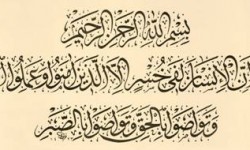 بسم الله الرحمن الرحيم
إن الإنسان لفي خسر إلا الذين آمنوا وعملوا
وتواصوا بالحق وتواصوا بالصبر